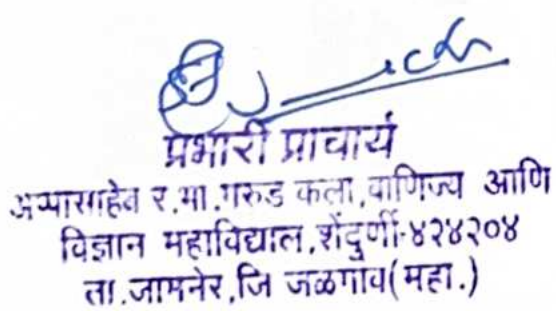 प्रभारी प्राचार्य
अप्पासाहेब र.भा.गरुड कला,वाणिज्य आणि
विज्ञान महाविद्याल,शेंदुर्णी-४२४२०४
ता.जामनेर,जि जळगाव(महा.)